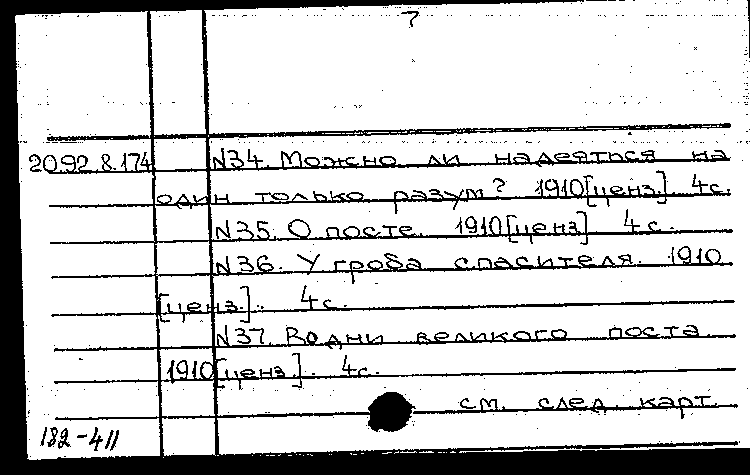 7
20.92.8.174 N34. Можно ли надеяться на
один только разум? 1910[ценз.] 4с.
N35. О посте. 1910[ценз] 4с.
N36. У гроба спасителя. 1910
[ценз.]. 4с.
N37. В одни великого поста
1910[ценз.]. 4с.
см. след. карт.
182-411